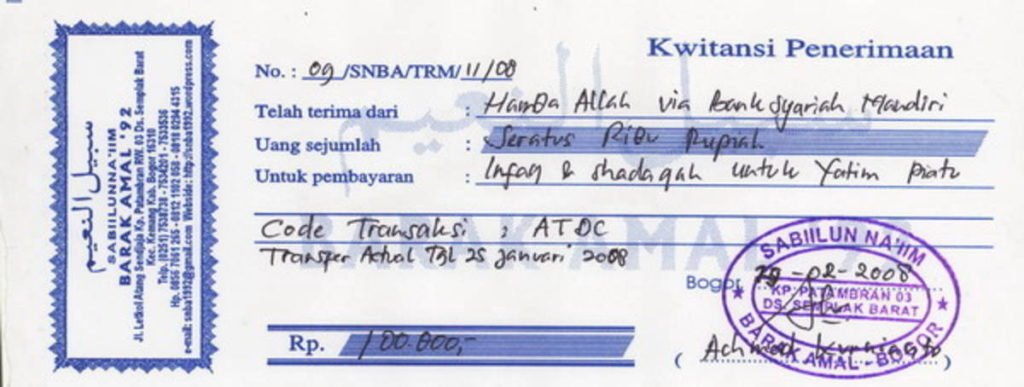 سبيل النعيم
SABIILUNNA'IIM
BARAK AMAL '92
Jl. Letkol Atang Sendjaja Kp. Patambran RW. 03 Ds. Semplak Barat
Kec. Kemang Kab. Bogor 16310
e-mail: snba1992@gmail.com Webside: http://snba1992.wordpress.com
Kwitansi Penerimaan
No. : 09 /SNBA/TRM/ 11/08
Telah terima dari : Hamba Allah via Bank Syariah Mandiri
Uang sejumlah : Seratus Ribu Rupiah
Untuk pembayaran : Infaq & shadaqah untuk Yatim Piatu
Code Transaksi : ATDC
Transfer Actual Tgl 25 januari 2008
Bogor, 29-02-2008
SABIILUN NA'IIM
KP. PATAMBRAN 03
DS. SEMPLAK BARAT
BARAK AMAL - BOGOR
Rp. 100.000,-
( Achmad )
سبيل النعيم
BARAK AMAL '92